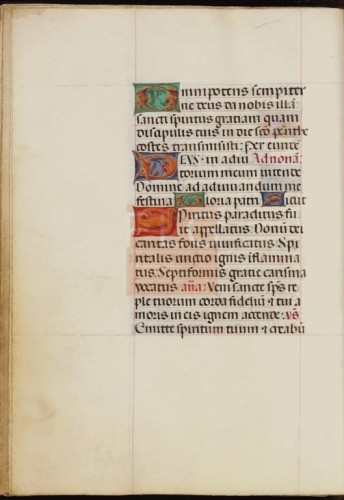 Omnipotens sempiter
ne deus da nobis illā
sancti spiritus gratiam quam
discipulis tuis in die scō penthe
costes transmisisti: Per eundē
DEUS in adiu Ad nonā:
torium meum intende
Domine ad adiuvandum me
festina Gloria patri Sicut
Spiritus paraclitus fu
it appellatus. Donū dei
caritas fons viuificatus. Spi
ritalis unctio ignis inflamma
tus. Septiformis gratie carisma
vocatus aña: Veni sancte spūs re
ple tuorum corda fideliū & tui a
moris in eis ignem accende: vs̄.
Emitte spiritum tuum & creabū